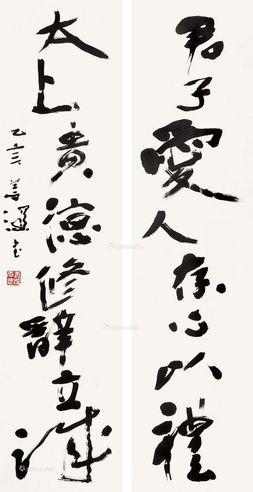 君子愛人存心以禮
太上貴德修辭立誠
乙亥